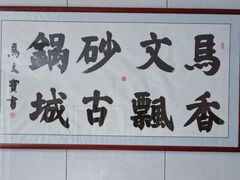 馬文砂鍋
香飄古城
馬 寶書